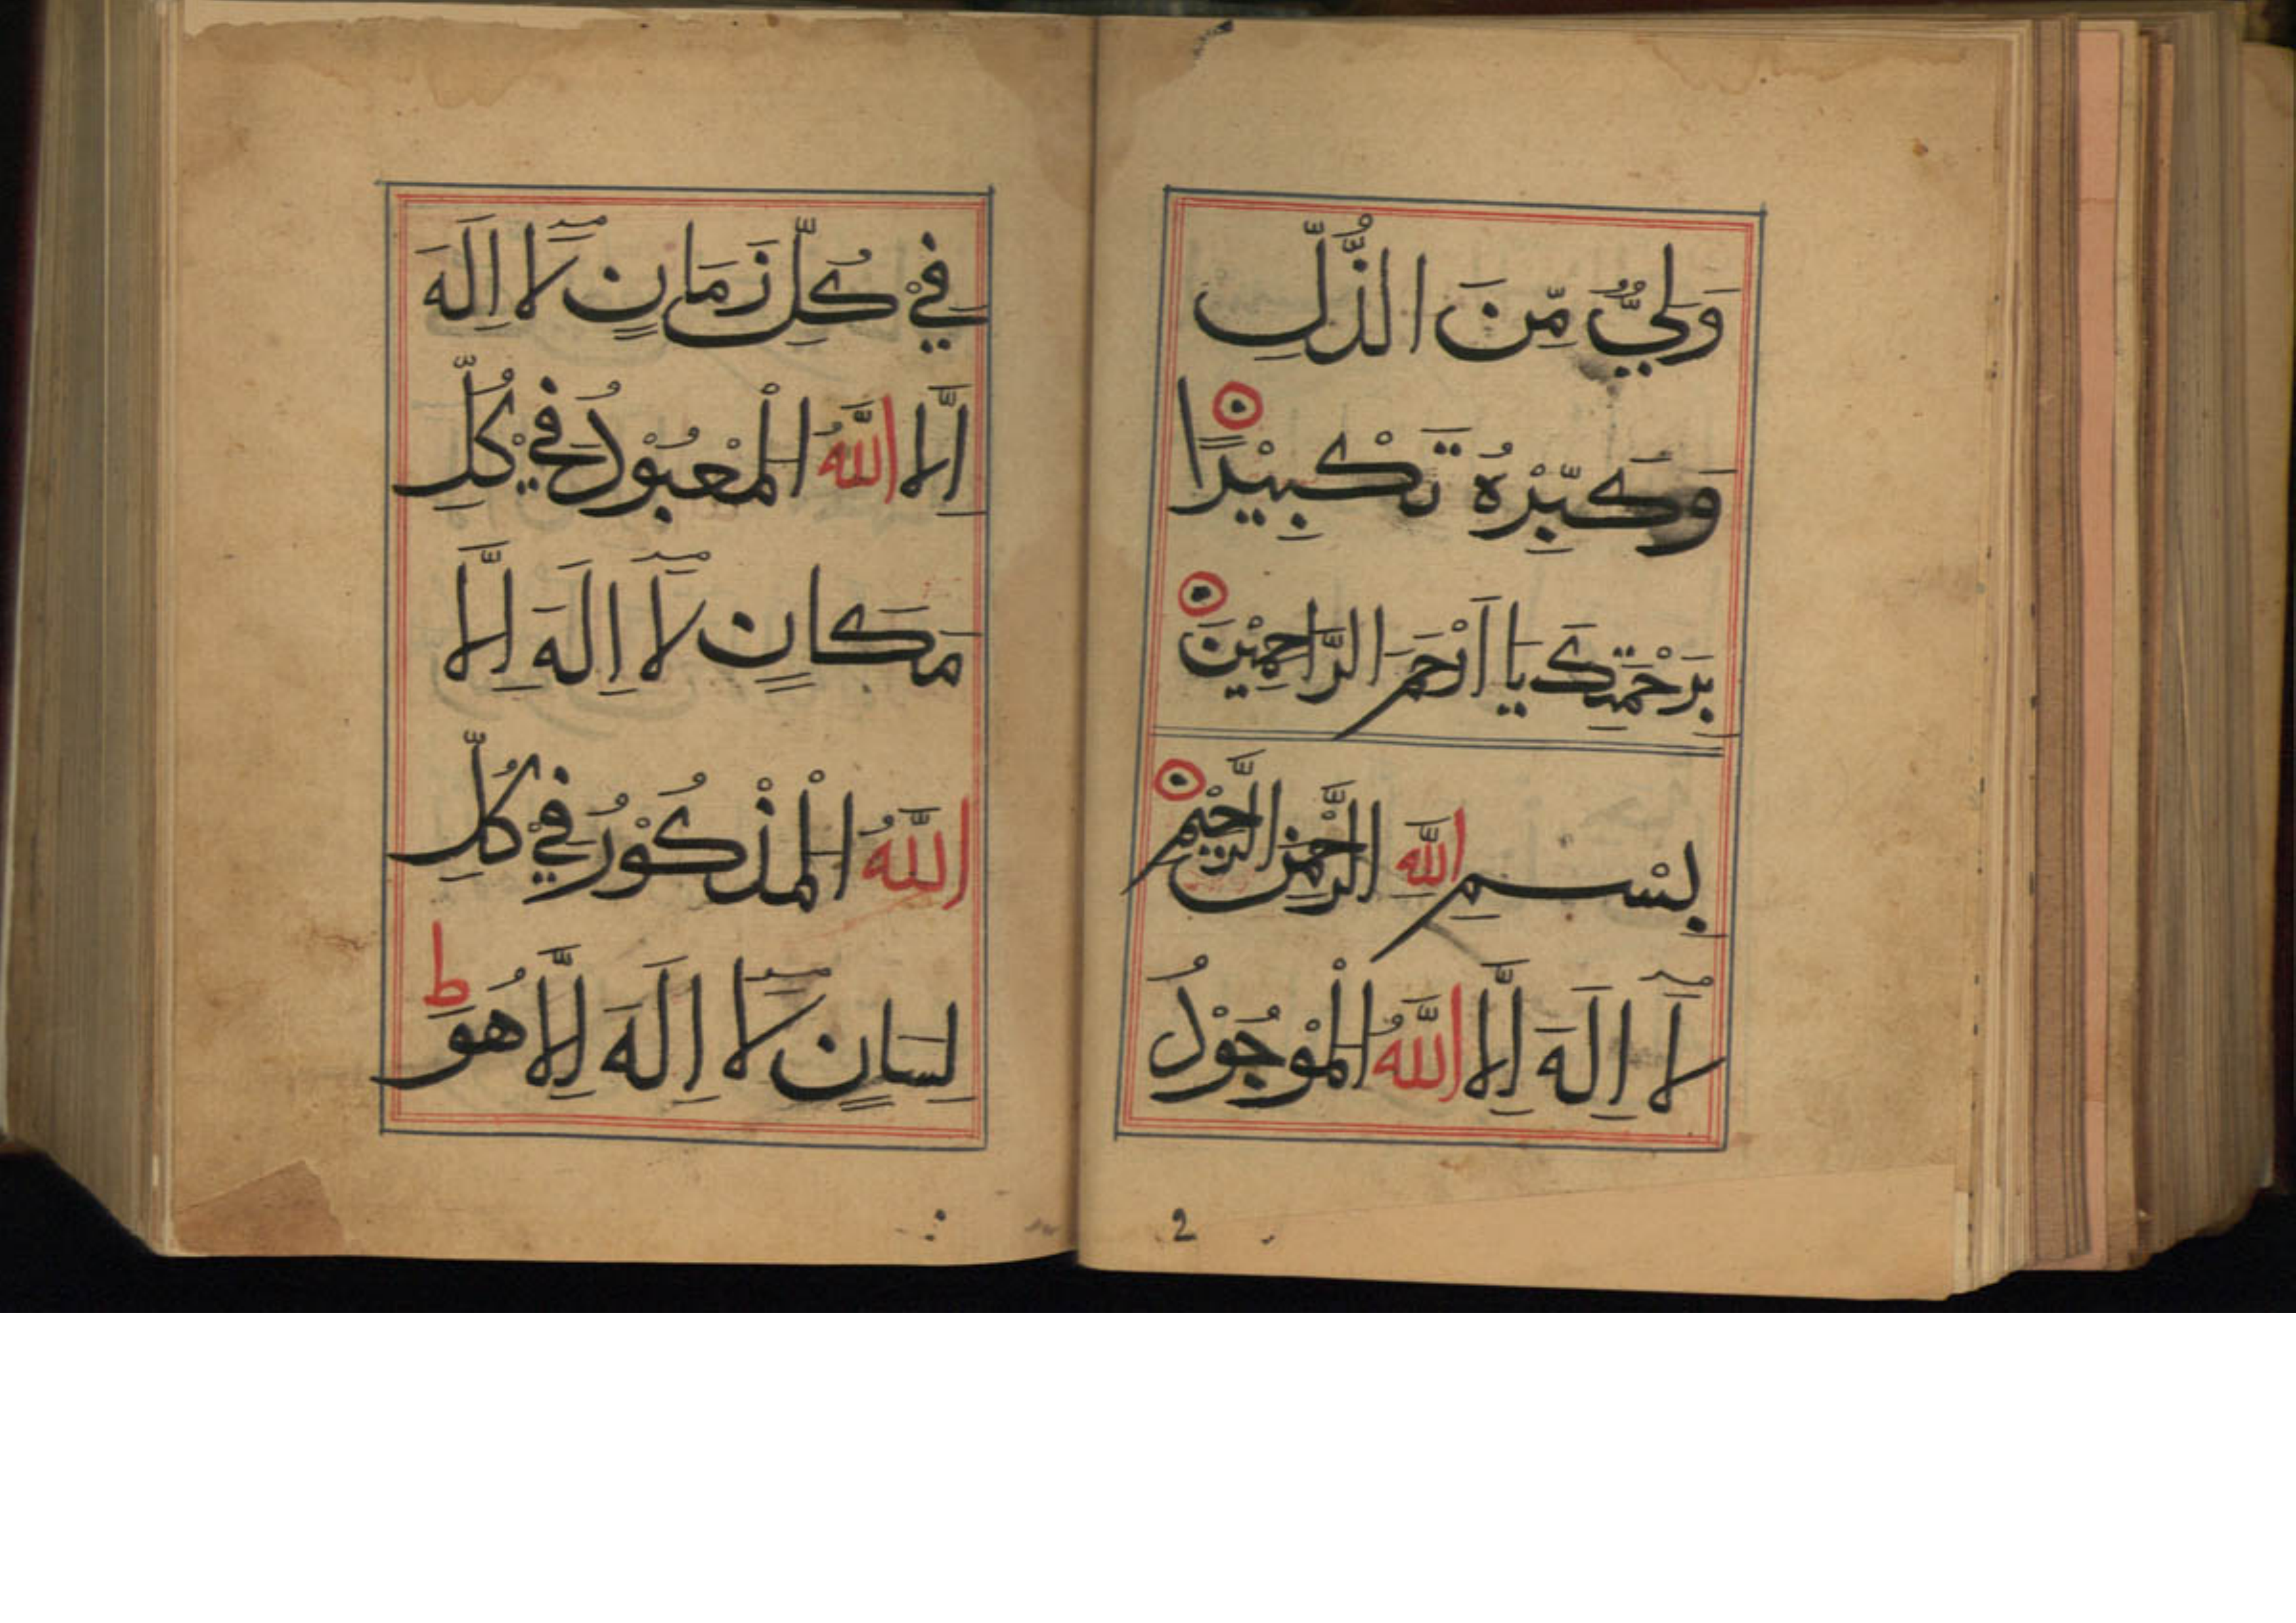 وَلِيٌّ مِّنَ الذُّلِّ
وَكَبِّرْهُ تَكْبِيْرًا
بِرَحْمَتِكَ يَا اَرْحَمَ الرَّاحِمِيْنَ
بِسْمِ اللّٰهِ الرَّحْمٰنِ الرَّحِيْمِ
لَآ اِلٰهَ اِلَّا اللّٰهُ الْمَوْجُوْدُ
2
فِيْ كُلِّ زَمَانٍ لَآ اِلٰهَ
اِلَّا اللّٰهُ الْمَعْبُوْدُ فِيْ كُلِّ
مَكَانٍ لَآ اِلٰهَ اِلَّا
اللّٰهُ الْمَذْكُوْرُ فِيْ كُلِّ
لِسَانٍ لَآ اِلٰهَ اِلَّا هُوَ ط